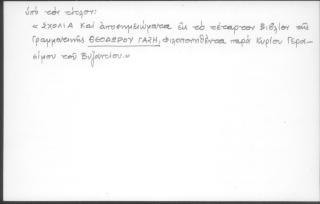 ὑπὸ τὸν τίτλον:
« ΣΧΟΛΙΑ καὶ ἀποσημειώματα εἰς τὸ τέταρτον Βιβλίον τῆς
Γραμματικῆς ΘΕΟΔΩΡΟΥ ΓΑΖΗ, φιλοπονηθέντα παρὰ Κυρίου Γερα-
σίμου τοῦ Βυζαντίου.»